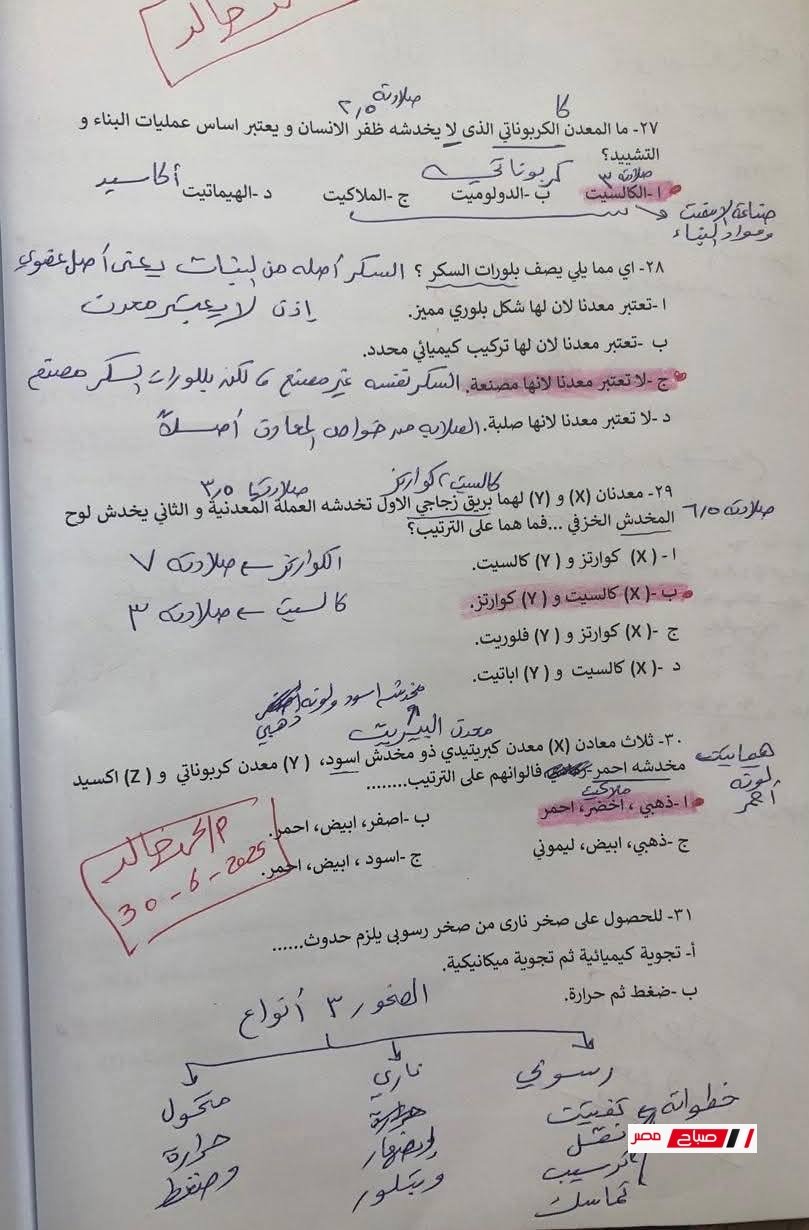 خالد
كا
صلادته ٢٫٥
٢٧- ما المعدن الكربوناتي الذى لا يخدشه ظفر الانسان و يعتبر اساس عمليات البناء و
التشييد؟
صلادته ٣
كربوناتي
أكاسيد
ا -الكالسيت ب -الدولوميت ج -الملاكيت د -الهيماتيت
صناعة الاسمنت
ومواد البناء
٢٨- اي مما يلي يصف بلورات السكر ؟ السكر أصله من النبات يعنى أصل عضوي
ا -تعتبر معدنا لان لها شكل بلوري مميز. إذن لا يعتبر معدن
ب -تعتبر معدنا لان لها تركيب كيميائي محدد.
ج -لا تعتبر معدنا لانها مصنعة. السكر نفسه غير مصنع لكن بللورات السكر مصنع
د -لا تعتبر معدنا لانها صلبة. الصلابه من خواص المعادن أصلاً
كالسيت، كوارتز
صلادتها ٣٫٥
٢٩- معدنان (X) و (Y) لهما بريق زجاجي الاول تخدشه العملة المعدنية و الثاني يخدش لوح
صلادته ٦٫٥
المخدش الخزفي ...فما هما على الترتيب؟
ا - (X) كوارتز و (Y) كالسيت.
الكوارتز صلادته ٧
ب -(X) كالسيت و (Y) كوارتز.
كالسيت صلادته ٣
ج -(X) كوارتز و (Y) فلوريت.
د -(X) كالسيت و (Y) اباتيت.
مخدشه اسود ولونه
ذهبي
معدن البيريت
٣٠- ثلاث معادن (X) معدن كبريتيدي ذو مخدش اسود، (Y) معدن كربوناتي و (Z) اكسيد
مخدشه احمر فالوانهم على الترتيب........
هيماتيت
لونه
أحمر
ملاكيت
ا -ذهبي ، اخضر، احمر ب -اصفر، ابيض، احمر.
ج -ذهبي، ابيض، ليموني ج -اسود ، ابيض، احمر.
م/احمد خالد
30-6-2025
٣١- للحصول على صخر نارى من صخر رسوبى يلزم حدوث......
أ- تجوية كيميائية ثم تجوية ميكانيكية.
ب -ضغط ثم حرارة.
الصخور ٣ أنواع
رسوبي ناري متحول
خطواته تفتيت حرارة حرارة
نقل وانصهار وضغط
ترسيب وتبلور
تماسك
صباح مصر